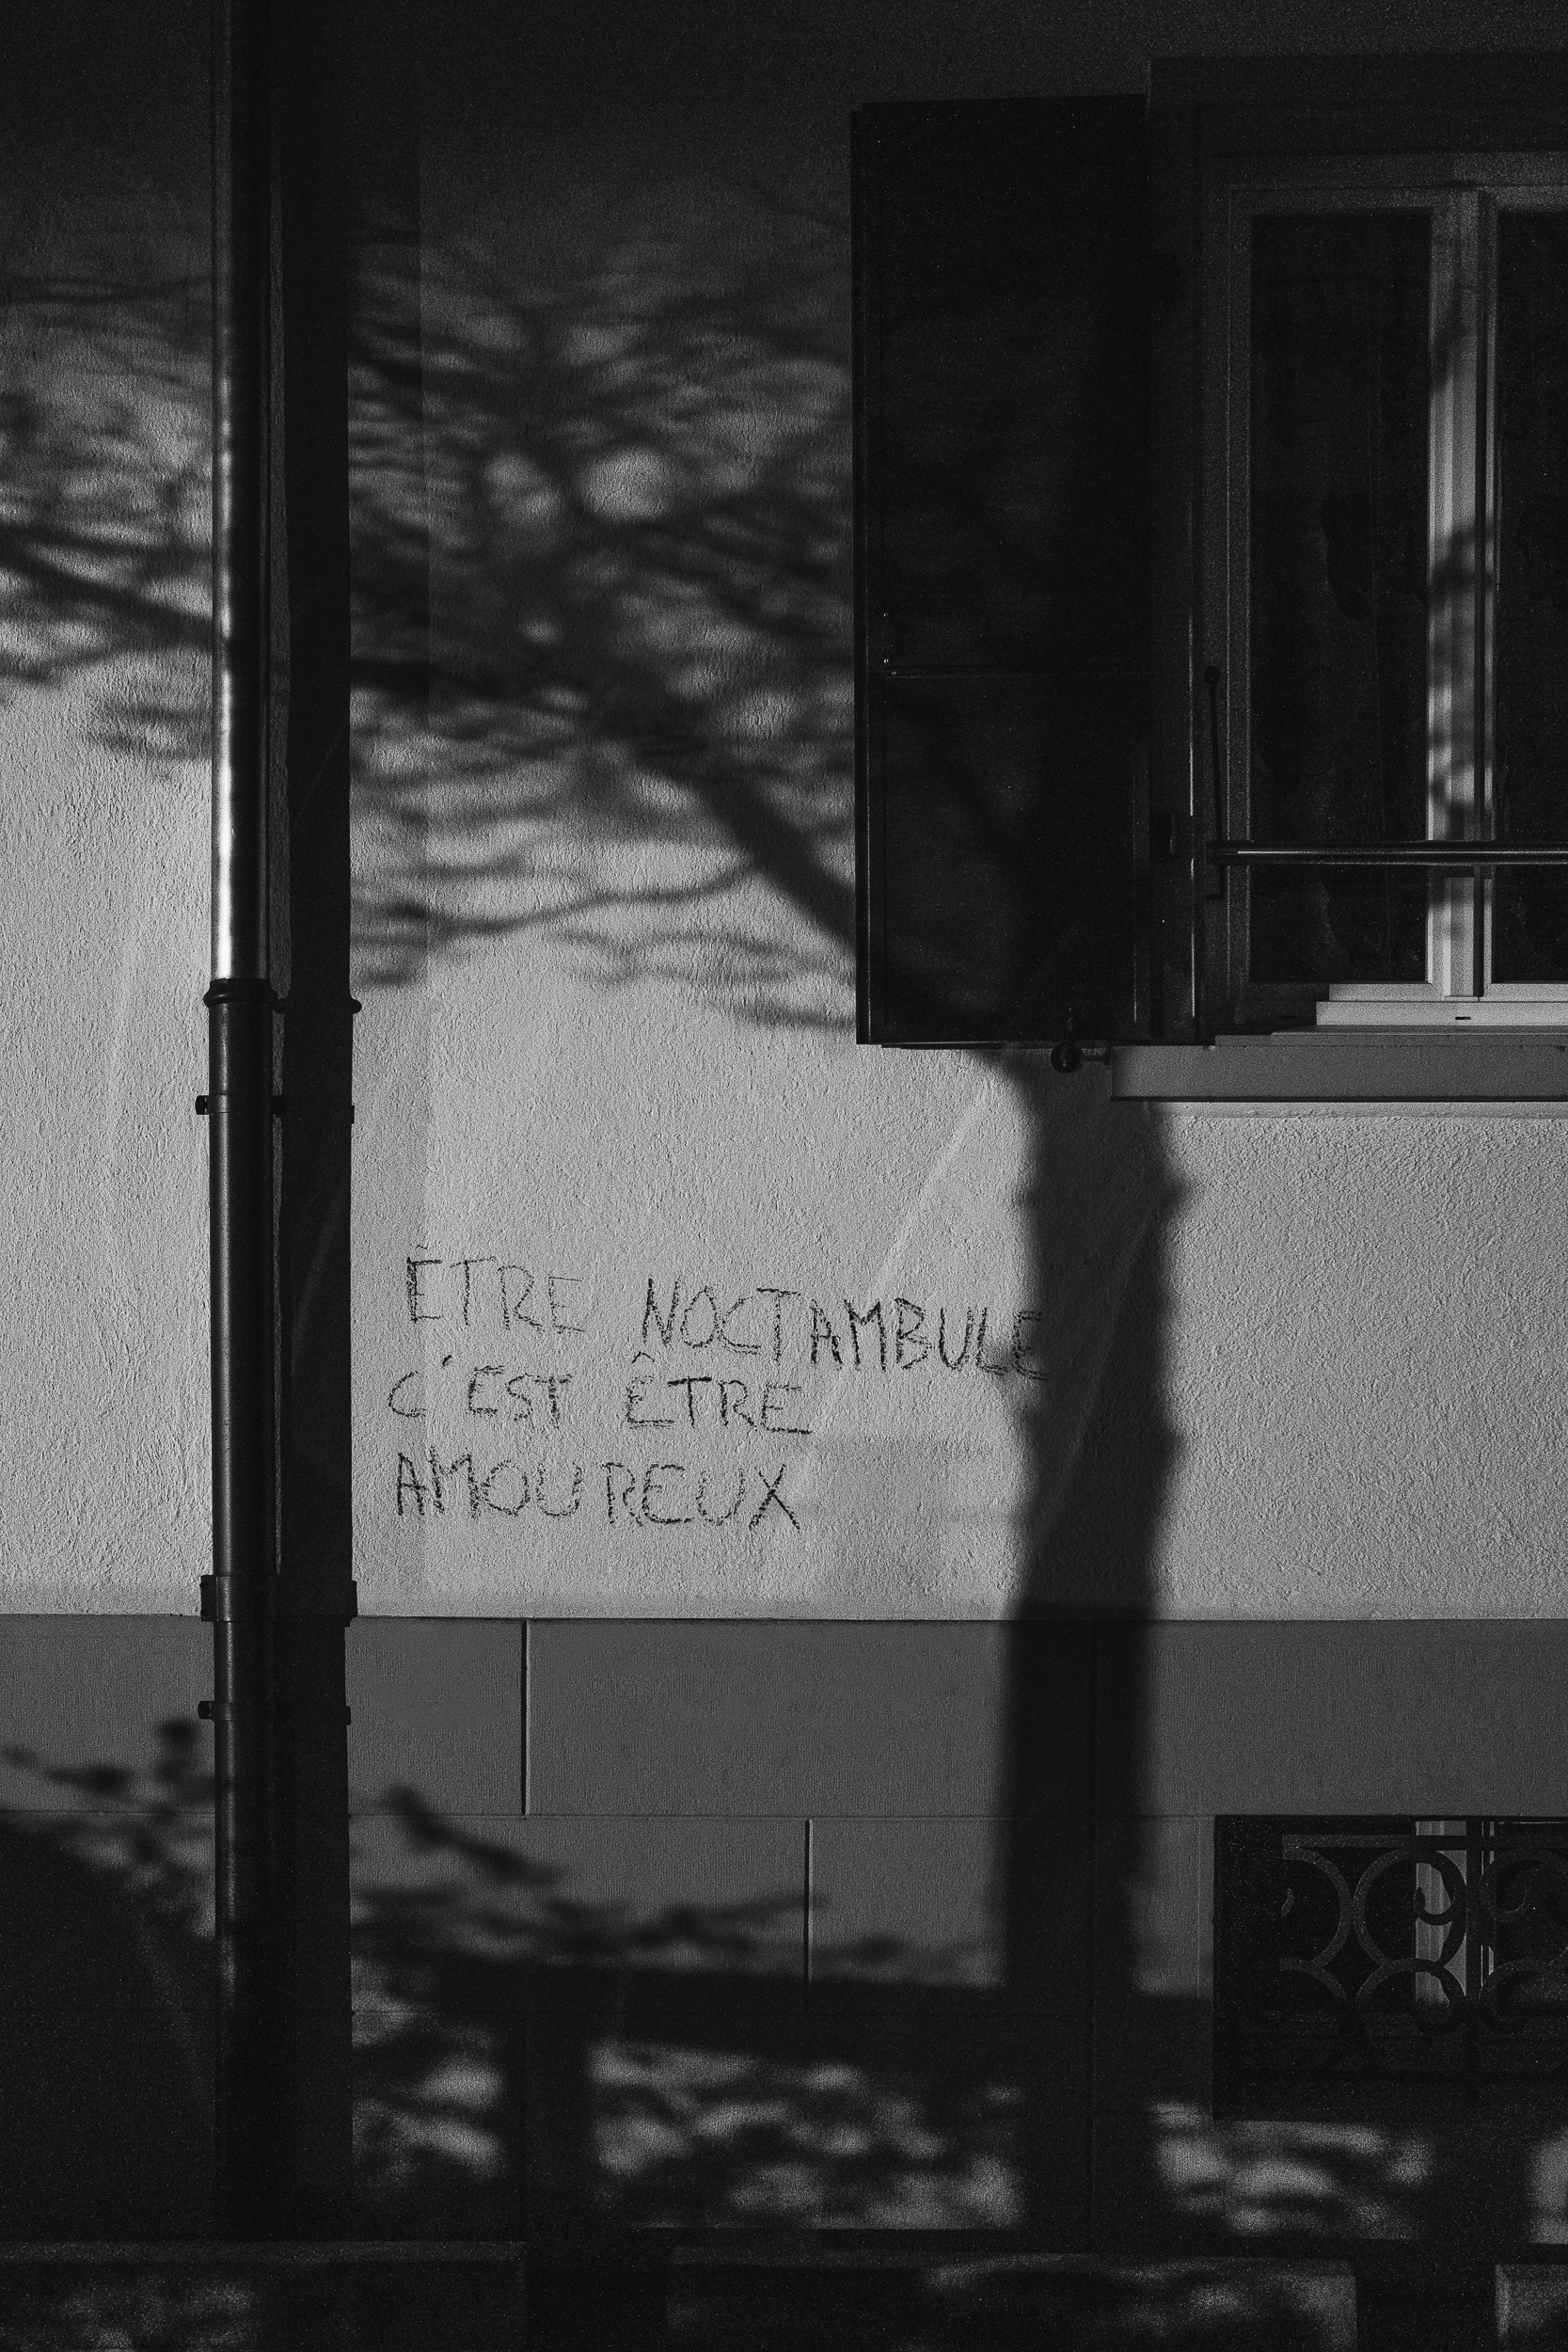 ÊTRE NOCTAMBULE
C'EST ÊTRE
AMOUREUX